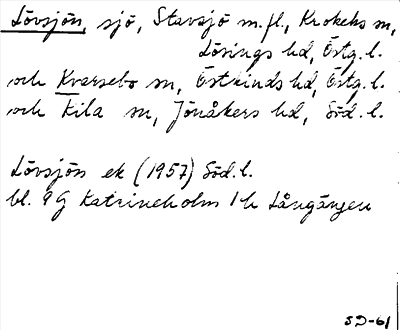 Lövsjön, sjö, Stavsjö m.fl., Krokeks sn,
Lösings hd, Östg. l.
och Kvarsebo sn, Östkinds hd, Östg. l.
och Kila sn, Jönåkers hd, Söd. l.
Lövsjön ek (1957) Söd. l.
bl. 9G Katrineholm 1h Långängen
SD-61